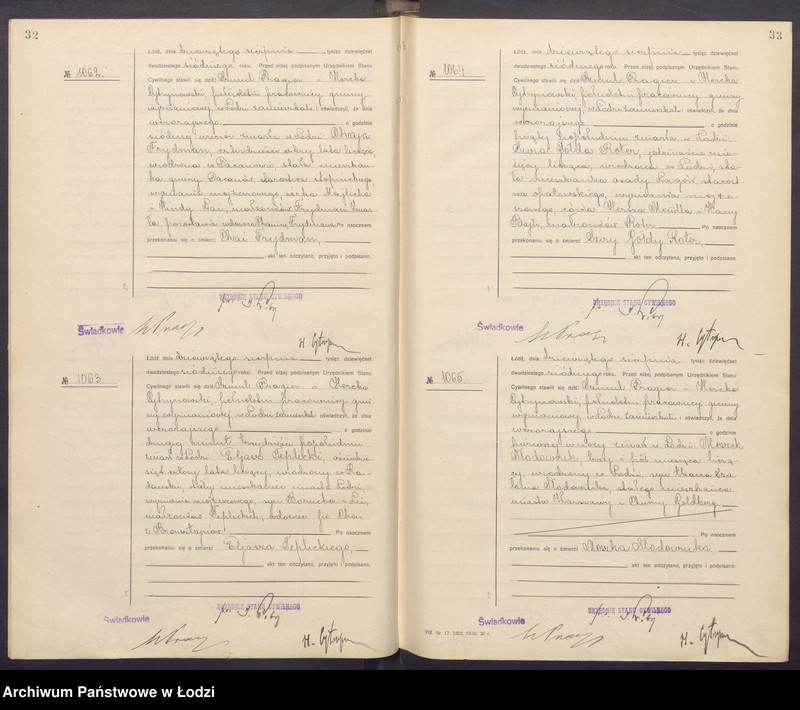 32
Łódź, dnia dziewiątego sierpnia tysiąc dziewięćset
№ 1062.
dwudziestego siódmego roku. Przed niżej podpisanym Urzędnikiem Stanu
Cywilnego stawili się dziś: Szmul Pragier i Hercka
Cytrynowski, pełnoletni pracownicy gminy
wyznaniowej, w Łodzi zamieszkali i oświadczyli, że dnia
wczorajszego o godzinie
siódmej wieczór zmarła w Łodzi Chaja
Frydman, czterdzieści cztery lata licząca,
urodzona w Pacanowie, stała mieszkan-
ka gminy Pacanów, starostwa stopnickiego,
wyznania mojżeszowego, córka Majlicha
i Mindy małżonków Frydman. Zmar-
ła pozostawiła wdowca Frydmana. Po naocznem
przekonaniu się o śmierci Chai Frydman,
akt ten odczytano, przyjęto i podpisano.
URZĘDNIK STANU CYWILNEGO
Świadkowie
№ 1063.
Łódź, dnia dziewiątego sierpnia tysiąc dziewięćset
dwudziestego siódmego roku. Przed niżej podpisanym Urzędnikiem Stanu
Cywilnego stawili się dziś: Szmul Pragier i Hercka
Cytrynowski, pełnoletni pracownicy gmi-
ny wyznaniowej, w Łodzi zamieszkali i oświadczyli, że dnia
wczorajszego o godzinie
drugiej minut trzydzieści popołudniu
zmarł w Łodzi Eljasz Teplicki, ośmdzie-
siąt cztery lata liczący, urodzony w Ra-
domsku, stały mieszkaniec miasta Łodzi,
wyznania mojżeszowego, syn Borucha i Lei,
małżonków Teplickich, wdowiec po Chai
z Po naocznem
przekonaniu się o śmierci Eljasza Teplickiego,
akt ten odczytano, przyjęto i podpisano.
URZĘDNIK STANU CYWILNEGO
Świadkowie
33
№ 1064
Łódź, dnia dziewiątego sierpnia tysiąc dziewięćset
dwudziestego siódmego roku. Przed niżej podpisanym Urzędnikiem Stanu
Cywilnego stawili się dziś: Szmul Pragier i Hercka
Cytrynowski, pełnoletni pracownicy gminy
wyznaniowej, w Łodzi zamieszkali i oświadczyli, że dnia
wczorajszego o godzinie
piątej popołudniu zmarła w Łodzi
Gołda Roter, jedenaście mie-
sięcy licząca, urodzona w Łodzi, sta-
ła mieszkanka osady Łagów, starost-
wa opatowskiego, wyznania mojże-
szowego, córka Herszа Mendla i
Bajli, małżonków Roter Po naocznem
przekonaniu się o śmierci Gołdy Roter,
akt ten odczytano, przyjęto i podpisano.
URZĘDNIK STANU CYWILNEGO
Świadkowie
№ 1065
Łódź, dnia dziewiątego sierpnia tysiąc dziewięćset
dwudziestego siódmego roku. Przed niżej podpisanym Urzędnikiem Stanu
Cywilnego stawili się dziś: Szmul Pragier i Hercka
Cytrynowski, pełnoletni pracownicy gminy
wyznaniowej, w Łodzi zamieszkali i oświadczyli, że dnia
wczorajszego o godzinie
pierwszej w nocy zmarł w Łodzi Moszek
Słodownik, trzy i pół miesiąca liczą-
cy, urodzony w Łodzi, syn
Słodownika, stałego mieszkańca
miasta Warszawy i Chumy Goldberg.
Po naocznem
przekonaniu się o śmierci Moszka Słodownika,
akt ten odczytano, przyjęto i podpisano.
URZĘDNIK STANU CYWILNEGO
Świadkowie
Archiwum Państwowe w Łodzi